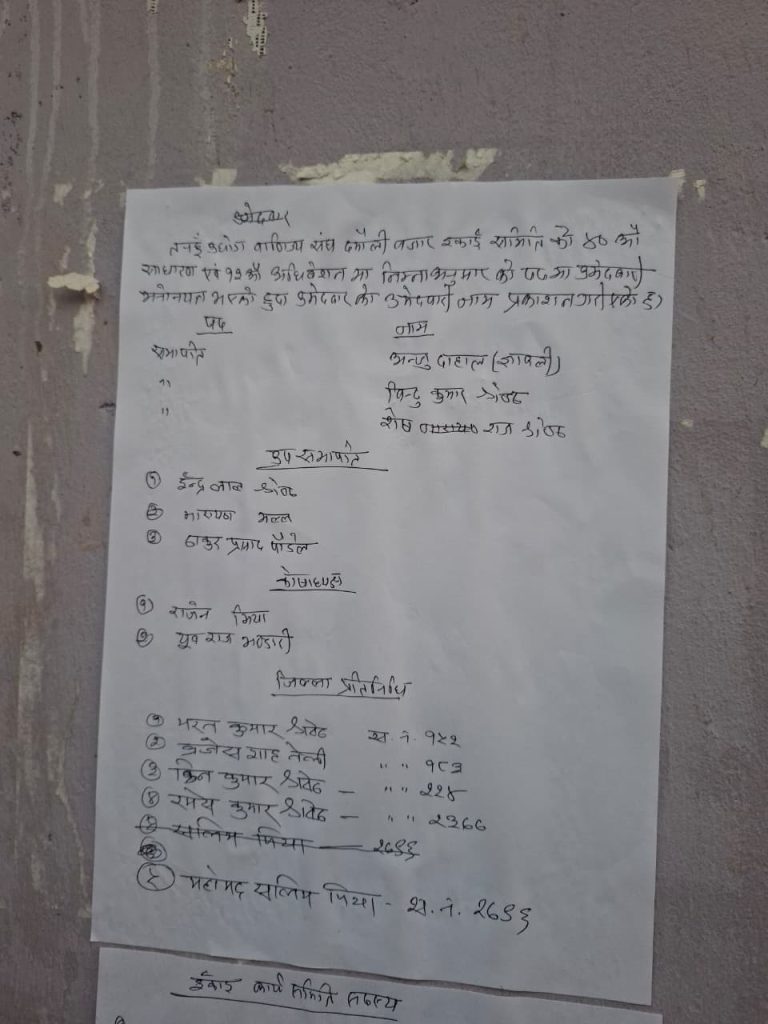 उमेदवार
तनहुँ उद्योग वाणिज्य संघ दमौली बजार इकाई समिति को ४० औ
साधारण एवं ११ औ अधिवेशन मा निम्नानुसार को पद मा उमेदवारी
मनोनयन भएको हुदा उमेदवार को उमेदवारी नाम प्रकाशन गरी एको छ)
पद नाम
सभापति अन्जु दाहाल (ज्ञावली)
" विन्दु कुमार श्रेष्ठ
" शेष राज श्रेष्ठ
उप सभापति
१ ईन्द्र लाल श्रेष्ठ
२ मल्ल
३ ठाकुर प्रसाद पौडेल
कोषाध्यक्ष
१ राजेन मिया
२ यूव राज भण्डारी
जिल्ला प्रतिनिधि
१ भरत कुमार श्रेष्ठ स. नं. १५१
२ ब्रजेस शाह तेली " " १८३
३ कुमार श्रेष्ठ – " " २२४
४ रमेश कुमार श्रेष्ठ – " " २३७७
५ सलिम मिया — २७९६
५ महोमद सलिम मिया - स. नं. २७९६
ईकाई कार्य समिति सदस्य